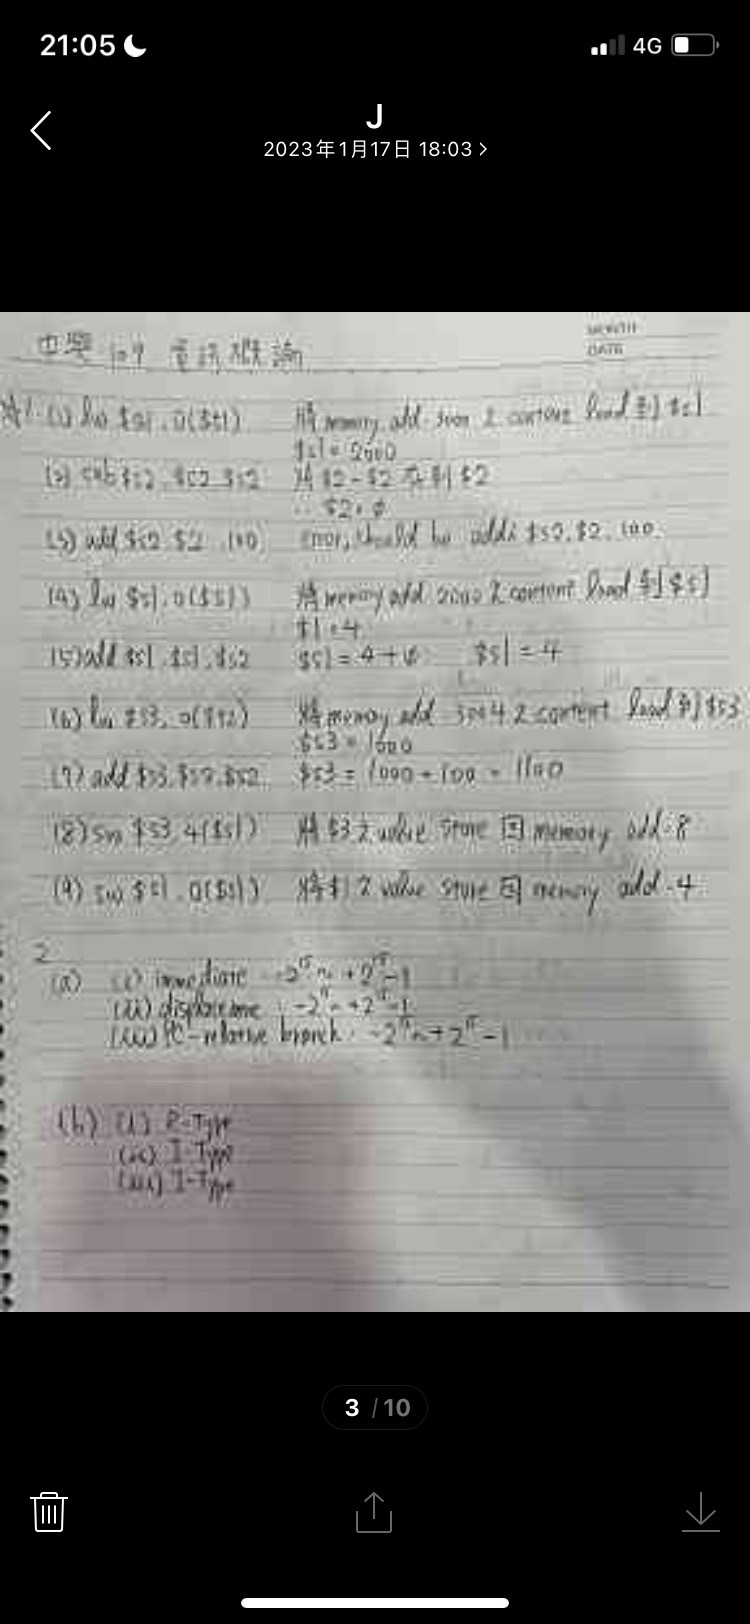 21:05
4G
J
2023年1月17日 18:03 >
中興 109 資訊概論
MONTH
DATE
(1) lw $s1, 0($t1) 將 memory add. 2 content load 到 $s1
$s1 = 2000
(2) sub $s2, $s2, $s2 將 $2-$2 存到 $2
$2 =
(3) add $s2 $2, 100 error, should be addi $s2, $2, 100.
(4) lw $s1, 0($s1) 將 memory add 2000 2 content load 到 $s1
$1 = 4
(5) add $s1, $s1, $s2 $s1 = 4 + $s1 = 4
(6) lw $s3, 0($t2) 將 memory add 3004 2 content load 到 $s3
$s3 = 1000
(7) add $s3, $s2 $s3 = 1000 + 100 = 1100
(8) sw $s3, 4($s1) 將 $3 2 value store 回 memory add=8
(9) sw $s1, 0($s1) 將 $1 2 value store 回 memory add=4
2
(a) (i) immediate -2^15 ~ +2^15-1
(ii) -2^15 ~ +2^15-1
(iii) PC-relative branch: -2^15 ~ +2^15-1
(b) (i) R-Type
(ii) I-Type
(iii) I-Type
3 / 10